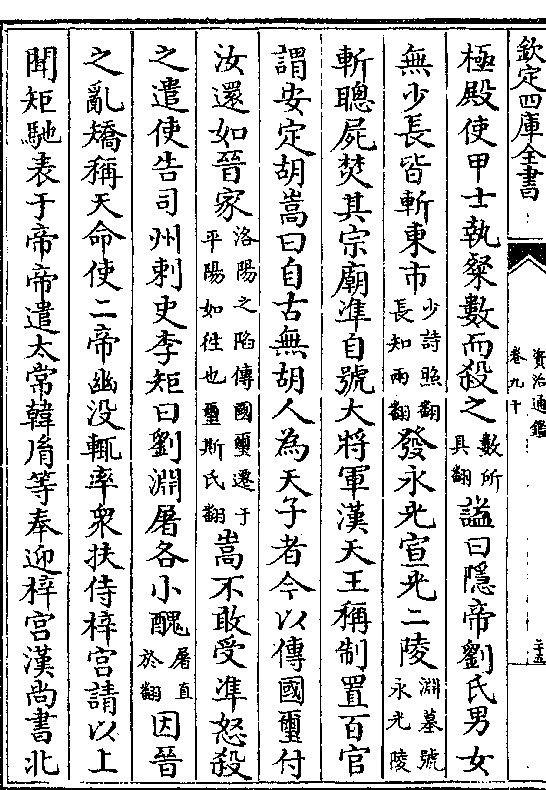 欽定四庫全書
資治通鑑
卷九十
二十五
極殿使甲士執粲數而殺之數所具翻諡曰隱帝劉氏男女
無少長皆斬東市少詩照翻長知兩翻發永光宣光二陵淵墓號永光陵
斬聰屍焚其宗廟凖自號大將軍漢天王稱制置百官
謂安定胡嵩曰自古無胡人為天子者今以傳國璽付
汝還如晉家洛陽之陷傳國璽遷于平陽如徃也璽斯氏翻嵩不敢受凖怒殺
之遣使告司州刺史李矩曰劉淵屠各小醜屠直於翻因晉
之亂矯稱天命使二帝幽没輒率衆扶侍梓宫請以上
聞矩馳表于帝帝遣太常韓胤等奉迎梓宫漢尚書北